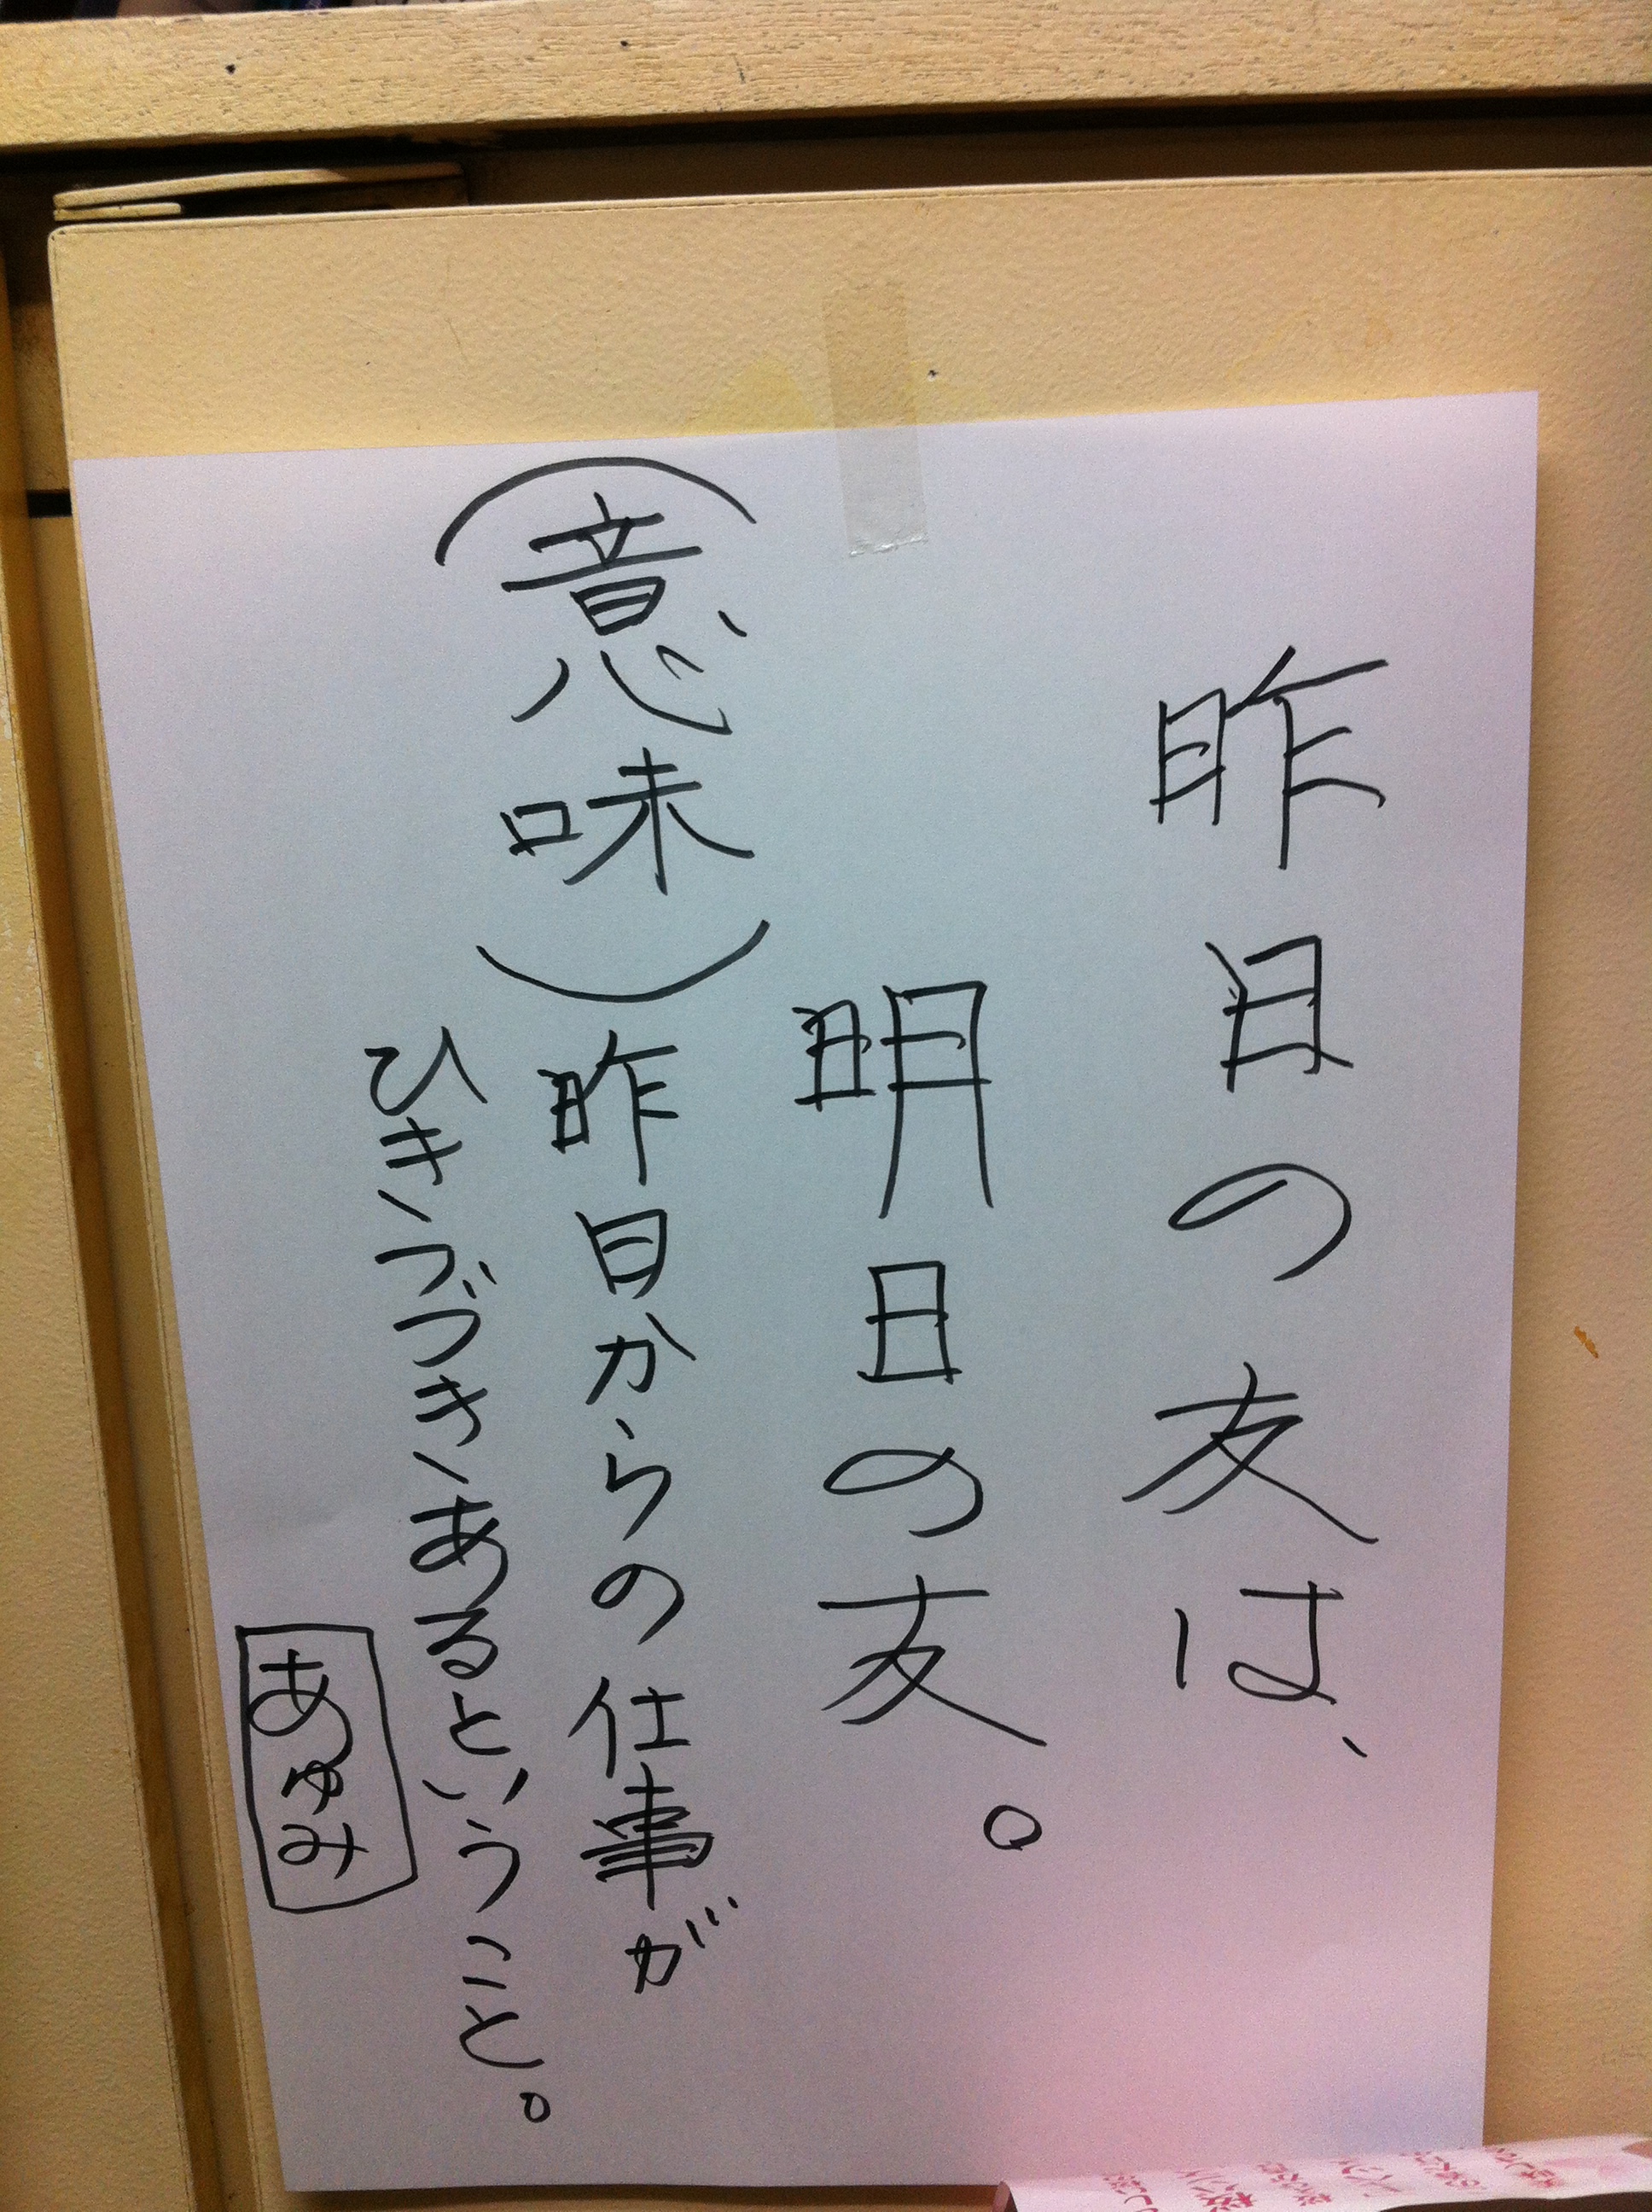 昨日の友は、
明日の友。
(意味)昨日からの仕事が
ひきつづきあるということ。
あゆみ